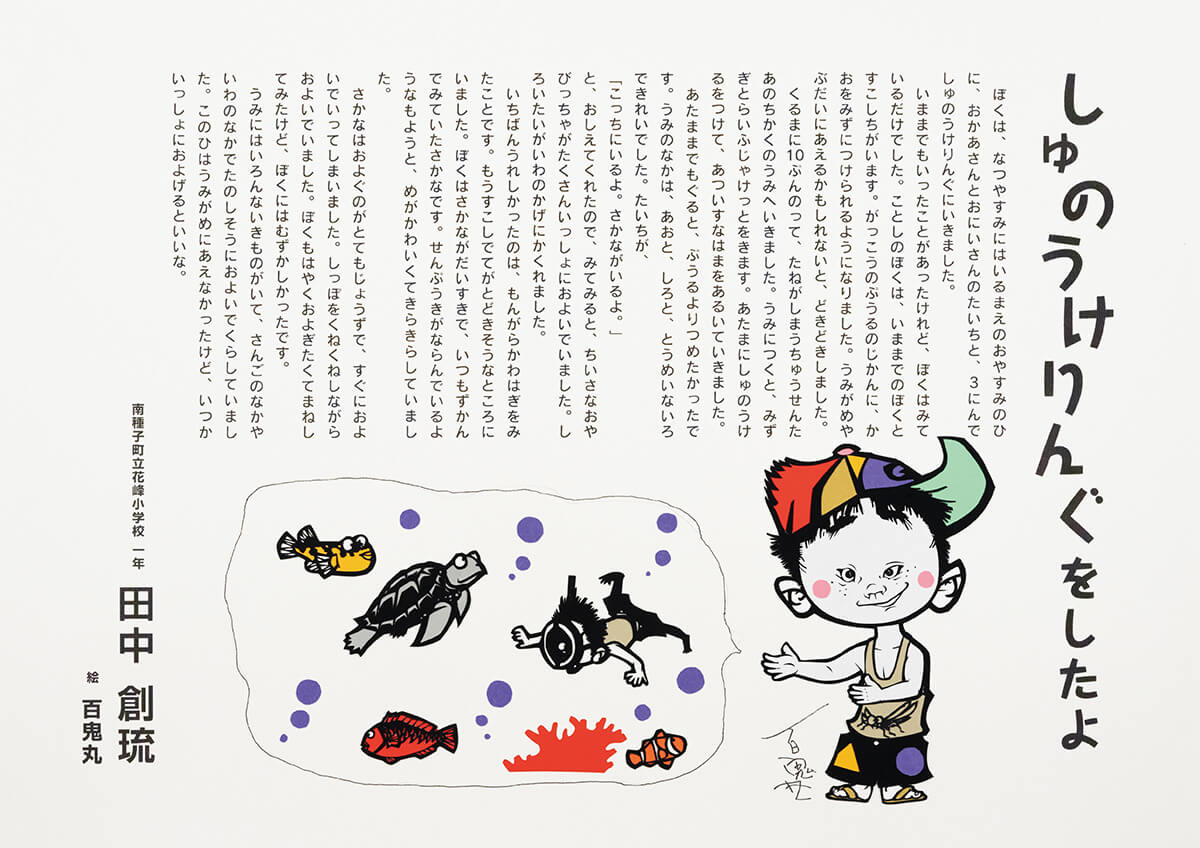 しゅのうけりんぐをしたよ
　ぼくは、なつやすみにはいるまえのおやすみのひ
に、おかあさんとおにいさんのたいちと、3にんで
しゅのうけりんぐにいきました。
　いままでもいったことがあったけれど、ぼくはみて
いるだけでした。ことしのぼくは、いままでのぼくと
すこしちがいます。がっこうのぷうるのじかんに、か
おをみずにつけられるようになりました。うみがめや
ぶだいにあえるかもしれないと、どきどきしました。
　くるまに10ぷんのって、たねがしまうちゅうせんた
あのちかくのうみへいきました。うみにつくと、みず
ぎとらいふじゃけっとをきます。あたまにしゅのうけ
るをつけて、あついすなはまをあるいていきました。
　あたままでもぐると、ぷうるよりつめたかったで
す。うみのなかは、あおと、しろと、とうめいないろ
できれいでした。たいちが、
「こっちにいるよ。さかながいるよ。」
と、おしえてくれたので、みてみると、ちいさなおや
びっちゃがたくさんいっしょにおよいでいました。し
ろいたいがいわのかげにかくれました。
　いちばんうれしかったのは、もんがらかわはぎをみ
たことです。もうすこしでてがとどきそうなところに
いました。ぼくはさかながだいすきで、いつもずかん
でみていたさかなです。せんぶうきがならんでいるよ
うなもようと、めがかわいくてきらきらしていまし
た。
　さかなはおよぐのがとてもじょうずで、すぐにおよ
いでいってしまいました。しっぽをくねくねしながら
およいでいました。ぼくもはやくおよぎたくてまねし
てみたけど、ぼくにはむずかしかったです。
　うみにはいろんないきものがいて、さんごのなかや
いわのなかでたのしそうにおよいでくらしていまし
た。このひはうみがめにあえなかったけど、いつか
いっしょにおよげるといいな。
南種子町立花峰小学校 一年
田中 創琉
絵 百鬼丸
百鬼丸